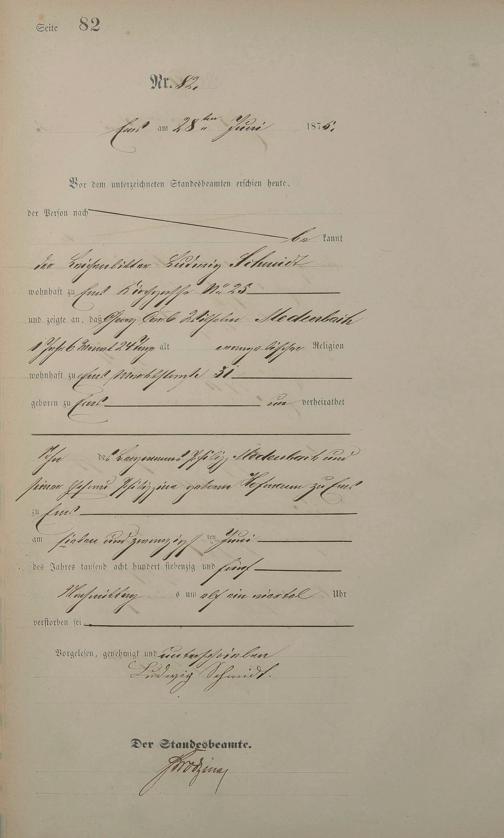 Seite 82
Nr. 82.
Ems am 28ten Juni 1875.
Vor dem unterzeichneten Standesbeamten erschien heute,
der Person nach
be kannt
der Leichenbitter Ludwig Schmidt
wohnhaft zu Ems Kirchgasse No 25
und zeigte an, daß Georg Carl Wilhelm Modenbach
1 Jahr 6 Monat 24 Tage alt evangelischer Religion
wohnhaft zu Ems Marktstraße 31
geboren zu Ems un verheirathet
Sohn des Philipp Modenbach und
seiner Ehefrau Philippina geborne Hofmann zu Ems
zu Ems
am sieben und zwanzigsten Juni
des Jahres tausend acht hundert siebenzig und fünf
Nachmittags um elf ein viertel Uhr
verstorben sei
Vorgelesen, genehmigt und unterschrieben
Ludwig Schmidt.
Der Standesbeamte.